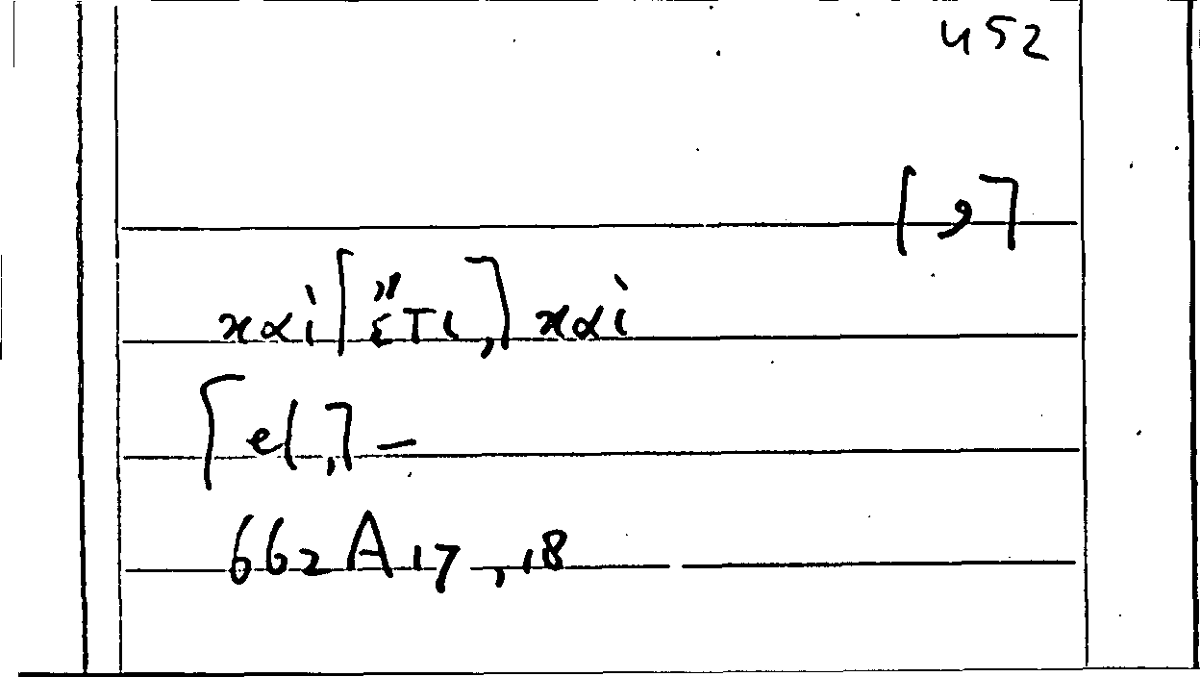 452
[و]
καὶ [ἔτι,] καὶ
[el,] –
662 A 17, 18